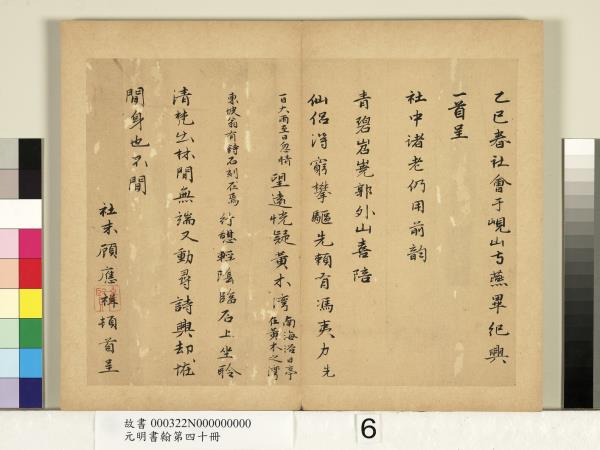 乙巳春社會于峴山寺燕畢紀興
一首呈
社中諸老仍用前韵
青碧岧嶤郭外山喜陪
仙侶得窮攀驅先賴有馮夷力先
一日大雨至日忽晴望遠恍疑黃木灣南海浴日亭
在黃木之灣
東坡翁有詩石刻在焉行憩輕陰臨石上坐聆
清梵出林間無端又動尋詩興却堆
閒身也不閒
社末顧應祥頓首呈
故書 000322N000000000
元明書翰第四十冊
6